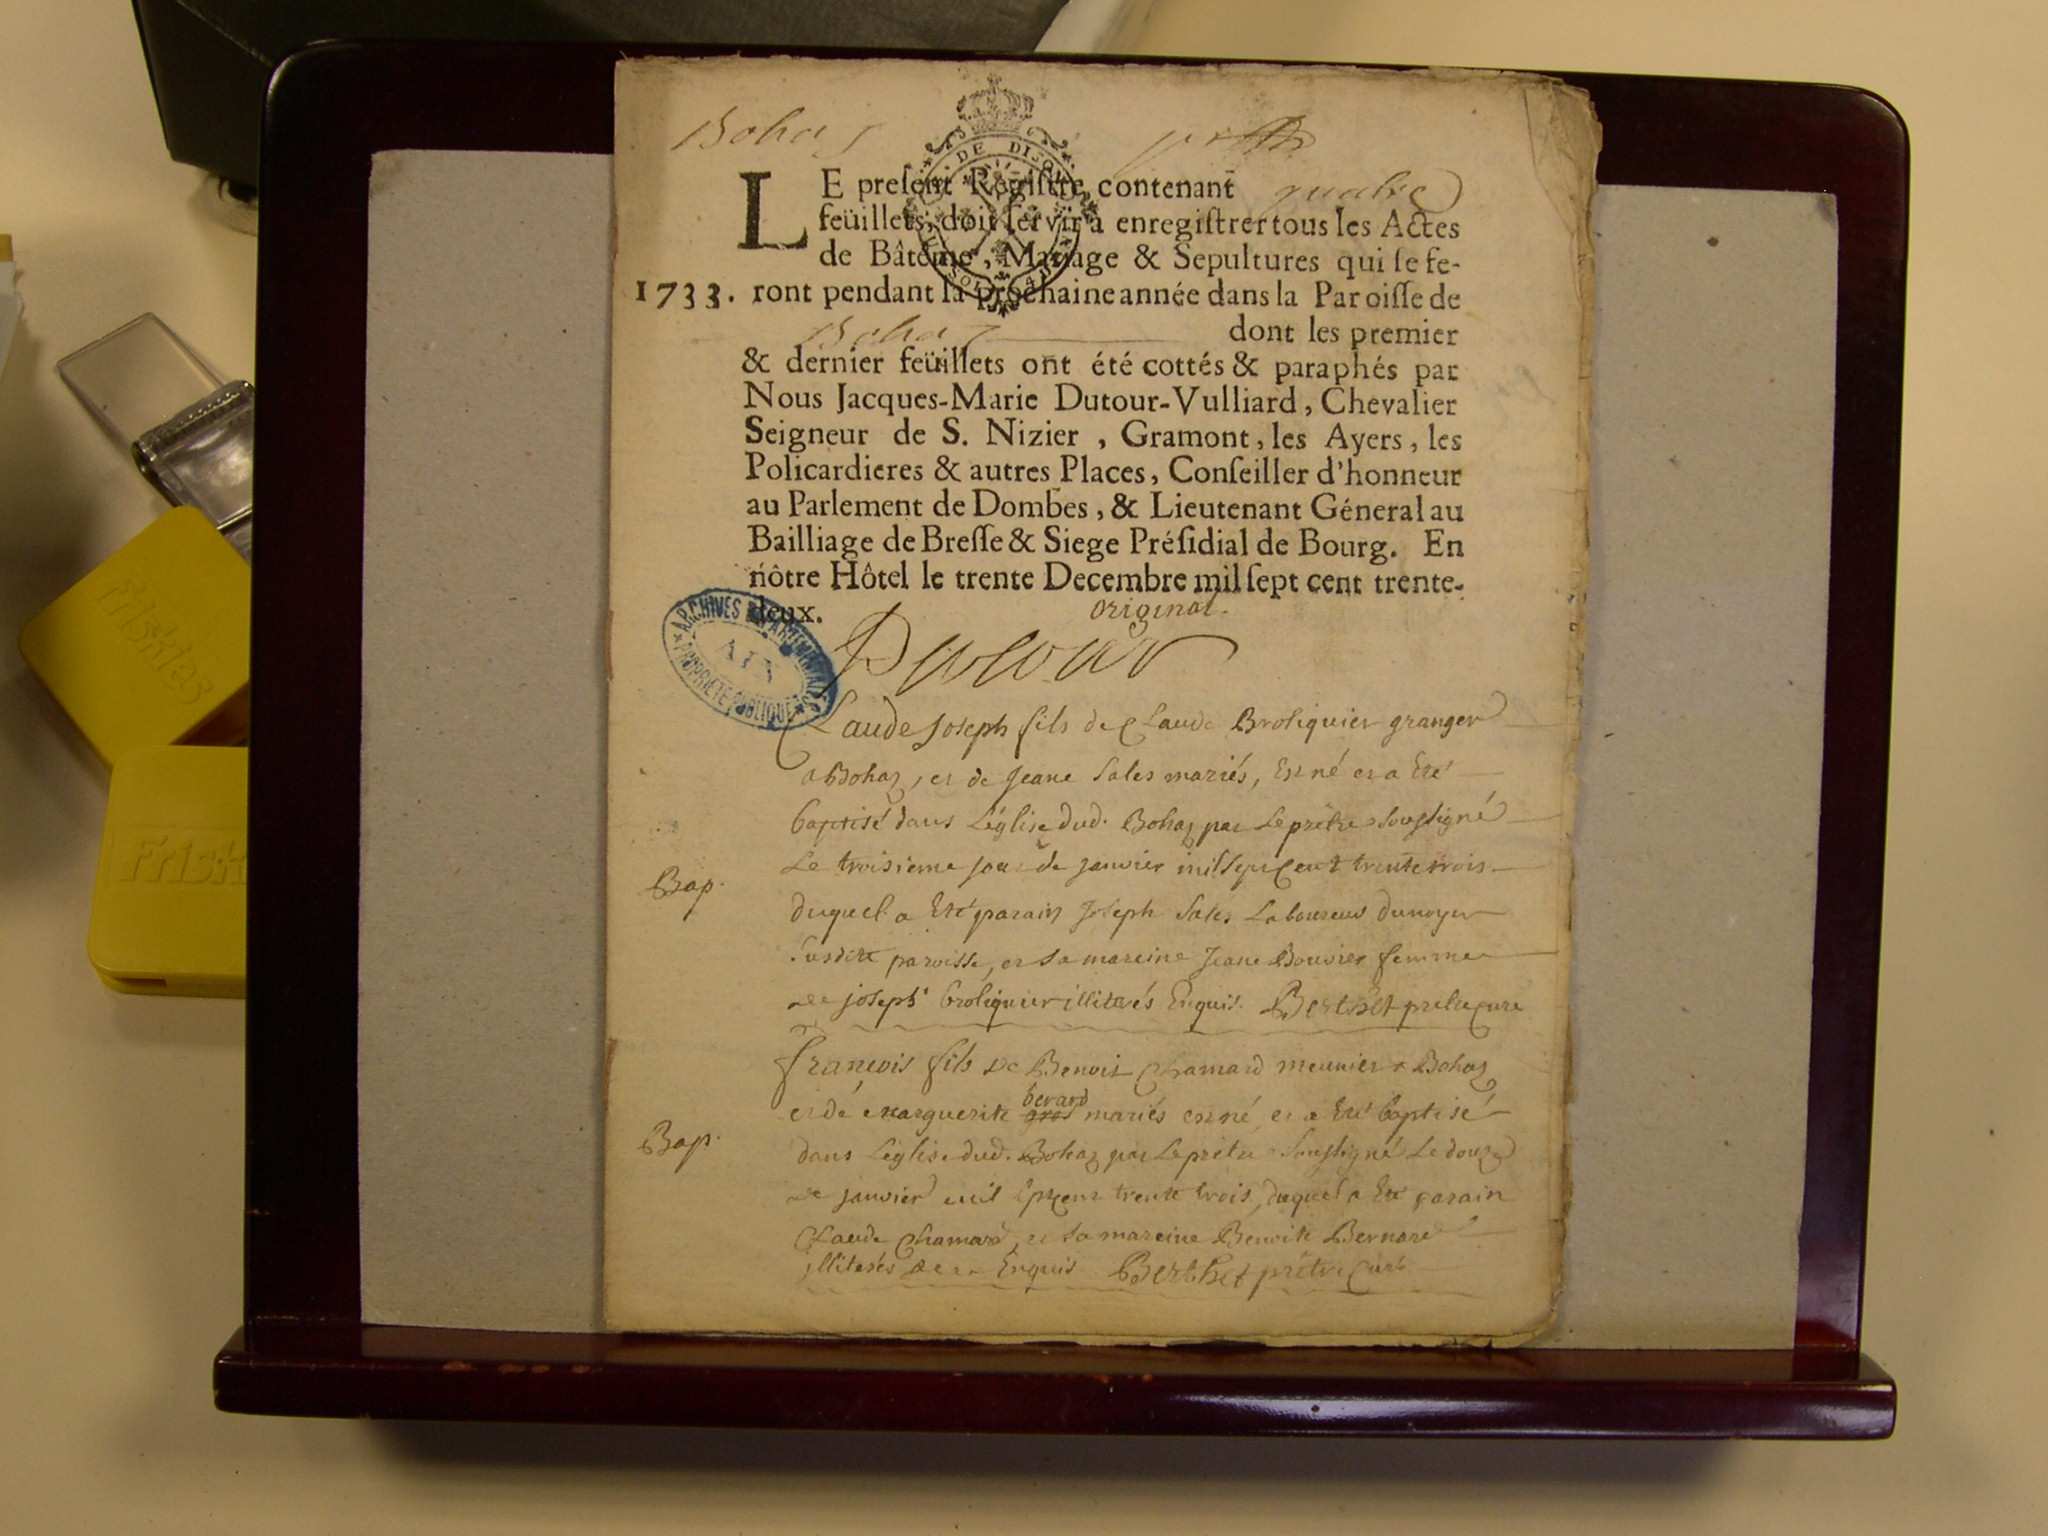 Bohas
DE DIJON
LE preſent Regiſtre contenant quatre
feüillets, doit ſervir à enregiſtrer tous les Actes
de Bâtême, Mariage & Sepultures qui ſe fe-
1733. ront pendant la prochaine année dans la Paroiſſe de
Bohas dont les premier
& dernier feüillets ont été cottés & paraphés par
Nous Jacques-Marie Dutour-Vulliard, Chevalier
Seigneur de S. Nizier, Gramont, les Ayers, les
Policardieres & autres Places, Conſeiller d'honneur
au Parlement de Dombes, & Lieutenant Géneral au
Bailliage de Breſſe & Siege Préſidial de Bourg. En
nôtre Hôtel le trente Decembre mil ſept cent trente-
deux.
original.
Dutour
ARCHIVES DEPARTEMENTALES
AIN
PROPRIETE PUBLIQUE
Claude Joseph fils de Claude Broliquier granger
a Bohaz, et de Jeane Sales mariés, Est né et a Eté
baptisé dans L'églize dud. Bohaz par Le prêtre Soussigné
Le troisieme jour de janvier mil sept Cent trente trois
Bap.
duquel a Eté parain Joseph Sales Laboureur dunoyer
Susdite paroisse, et sa mareine Jeane Bouvier femme
de joseph broliquier illiterés Enquis. Berthet prêtre Curé
françois fils de Benoit Chamard meunier a Bohaz
et de marguerite gros berard mariés est né, et a Eté baptisé
Bap.
dans L'églize dud. Bohaz par Le prêtre Soussigné Le douze
de janvier mil sept cent trente trois, duquel a Eté parain
Claude Chamard, et sa mareine Benoite Bernard
illiterés de ce Enquis Berthet prêtre Curé
Friskies
Frisk